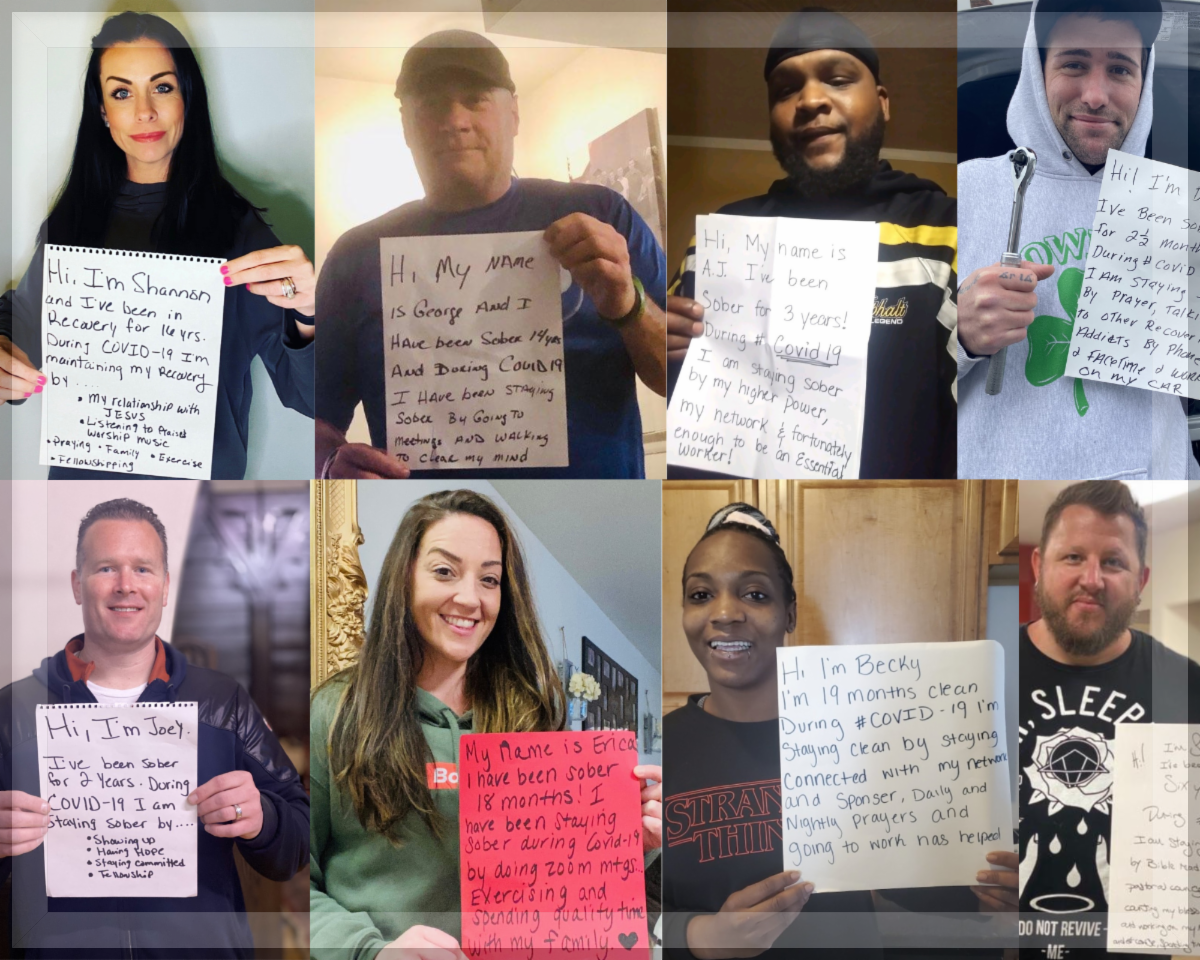 Hi, I'm Shannon
and I've been in
Recovery for 14 yrs.
During COVID-19 I'm
maintaining my Recovery
by ....
• My relationship with
JESUS
• Listening to Praise &
Worship music
• Praying • Family • Exercise
• Fellowshipping
Hi, My NAME
is George And I
HAve been Sober 14 yrs
And During COVID19
I HAVE been STAYING
Sober By Going To
meetings AND WALKING
To Clear my mind
Hi, My name is
A.J. I've been
Sober for 3 years!
During # Covid 19
I am staying sober
by my higher power,
my network & fortunately
enough to be an Essential
Worker!
LEGEND
Hi! I'm
I've Been
for 2½
During # COVID
I AM STAYING
By PRAYER,
to other
Addicts By Phone
& FACETIME &
ON my CAR
Hi, I'm Joey.
I've been sober
for 2 Years. During
COVID-19 I am
Staying Sober by....
• Showing up
• Having HOPE
• Staying committed
• Fellowship
My Name is Erica
I have been sober
18 months! I
have been staying
sober during Covid-19
by doing zoom mtgs..
Exercising and
Spending quality time
with my family. ♥
Bo
Hi I'm Becky
I'm 19 months clean
During #COVID-19 I'm
Staying clean by staying
connected with my network
and Sponser, Daily and
Nightly Prayers and
going to work has helped
STRAN
THIN
SLEEP
Hi! I'm
I've been
Six
During
I am staying
by Bible
DO NOT REVIVE
-ME-